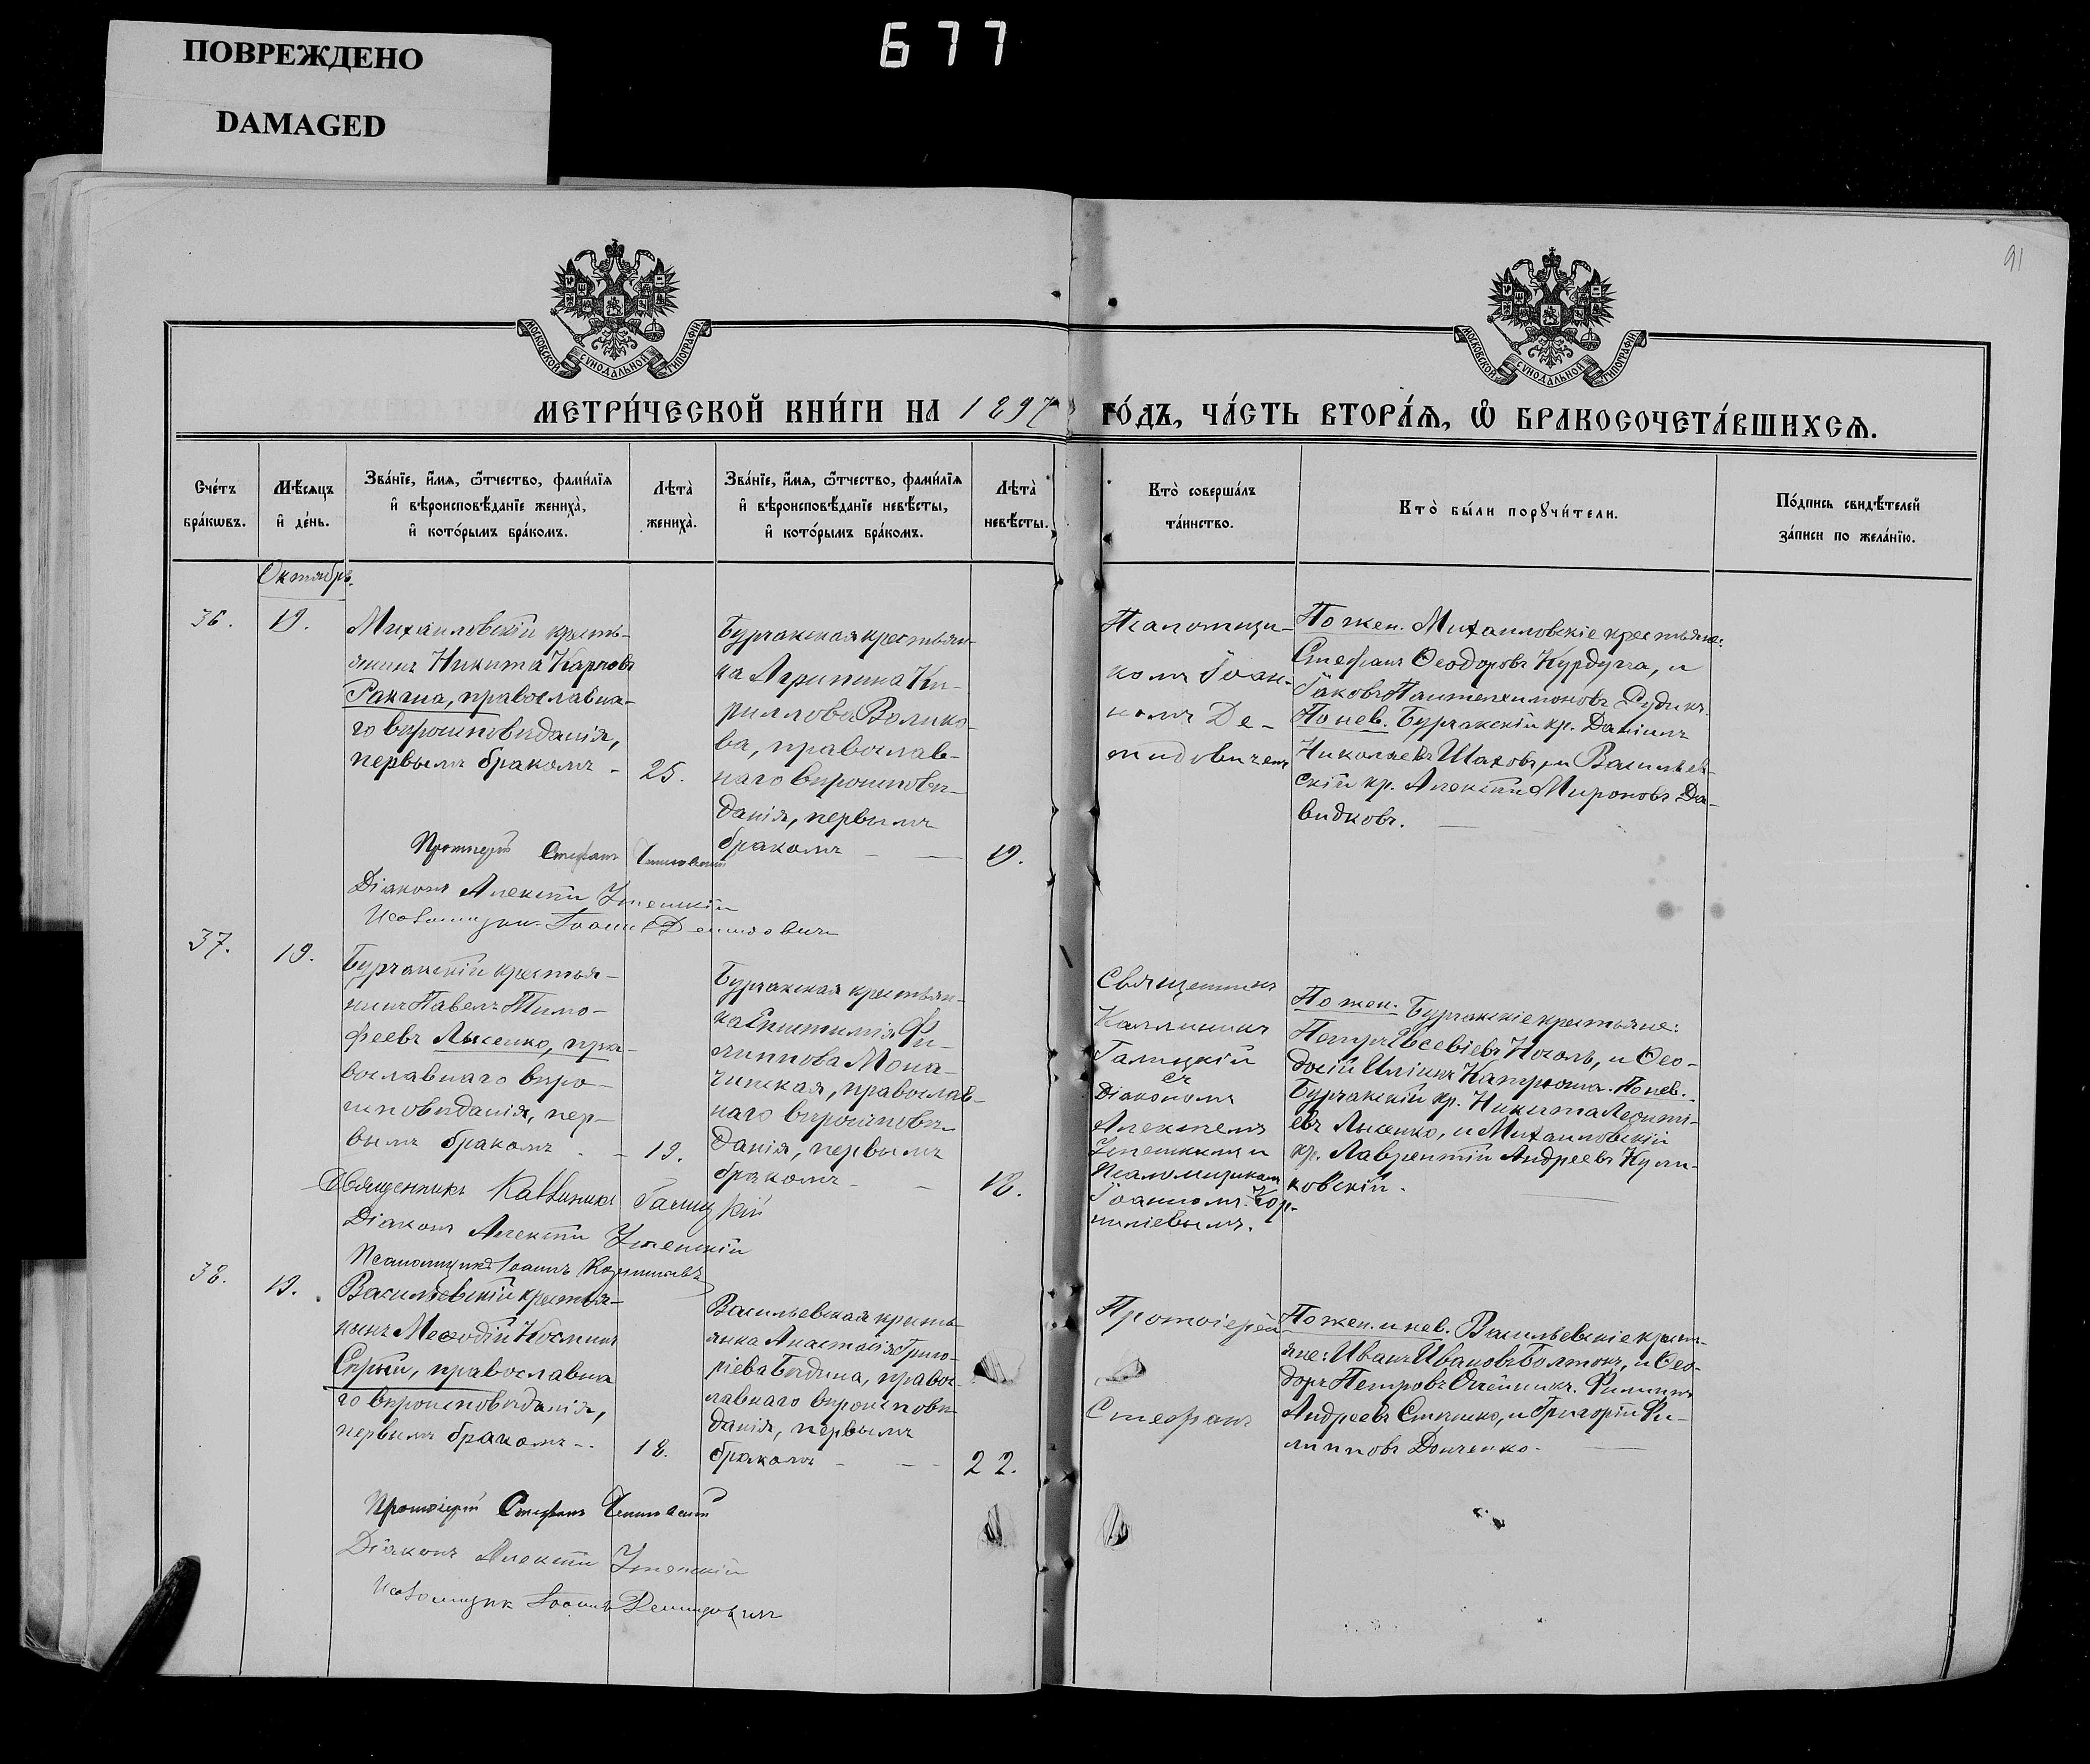 ПОВРЕЖДЕНО
DAMAGED
677
91
МОСКОВСКОЙ СУНОДАЛЬНОЙ ТИПОГРАФІИ.
МОСКОВСКОЙ СУНОДАЛЬНОЙ ТИПОГРАФІИ.
МЕТРИ́ЧЕСКОЙ КНИ́ГИ НА 1897 ГО́ДЪ, ЧА́СТЬ ВТОРА́Ѧ, Ѽ БРАКОСОЧЕТА́ВШИХСѦ.
Счéтъ
брáкѡвъ.
Мѣ́сяцъ
и҆ дéнь.
Звáнїе, и҆́мѧ, ѻ҆́тчество, фамѝлїѧ
и҆ вѣроисповѣ́данїе женихà,
и҆ котóрымъ брáкомъ.
Лѣ́та
женихà.
Звáнїе, и҆́мѧ, ѻ҆́тчество, фамѝлїѧ
и҆ вѣроисповѣ́данїе невѣ́сты,
и҆ котóрымъ брáкомъ.
Лѣ́та
невѣ́сты.
Ктò совершáлъ
тáинство.
Ктò бы́ли порꙋчи́тели.
Пóдпись свидѣ́телей
зáписи по желáнїю.
Октябрь.
36.
19.
Михайловскій кресть-
янинъ Никита Карповъ
православна-
го вѣроисповѣданія,
первымъ бракомъ -
25.
Бурчакская крестьян-
ка Агрипина Ки-
риллова Волико-
ва, православ-
наго вѣроисповѣ-
данія, первымъ
бракомъ - -
19.
Псаломщи-
комъ Іоан-
номъ Де-
мидовичемъ
По жен. Михайловскіе крестьяне:
Стефанъ Ѳеодоровъ Курдуча, и
Іаковъ Пантелеимоновъ Рудикъ.
По нев. Бурчакскій кр. Даніилъ
Николаевъ Шаховъ, и Васильев-
скій кр. Алексѣй Мироновъ Да-
видковъ.
Протоіерей Стефанъ
Діаконъ Алексѣй
Псаломщик Іоаннъ Демидовичъ
37.
19.
Бурчакскій крестья-
нинъ Павелъ Тимо-
феевъ Лысенко, пра-
вославнаго вѣро-
исповѣданія, пер-
вымъ бракомъ - -
19.
Бурчакская крестьян-
ка Епистимія Фи-
липпова Мона-
чинская, православ-
наго вѣроисповѣ-
данія, первымъ
бракомъ - -
18.
Священникъ
Каллиникъ
Галицкій
съ
Діакономъ
Алексѣемъ
и
Псаломщикомъ
Іоанномъ Кор-
ниліевымъ.
По жен. Бурчакскіе крестьяне:
Петръ Евсевіевъ Ноголь, и Ѳео-
досій Иліинъ Катрюша. По нев.
Бурчакскій кр. Никита Леонті-
евъ Лысенко, и Михайловскій
кр. Лаврентій Андреевъ Кули-
ковскій.
Священникъ Каллиникъ Галицкій
Діаконъ Алексѣй
Псаломщикъ Іоаннъ Корниліевъ
38.
19.
Васильевскій крестья-
нинъ Меѳодій Косминъ
Сѣрый, православна
го вѣроисповѣданія,
первымъ бракомъ - -
18.
Васильевская кресть-
янка Анастасія Григо-
ріева Бѣдина, правос-
лавнаго вѣроисповѣ-
данія, первымъ
бракомъ - -
22.
Протоіерей
Стефанъ
По жен. и нев. Васильевскіе кресть-
яне: Иванъ Ивановъ Болтонъ, и Ѳео-
доръ Петровъ Олейникъ. Филиппъ
Андреевъ Стѣшко, и Григорій Фи-
липповъ Донченко.
Протоіерей Стефанъ
Діаконъ Алексѣй
Псаломщик Іоаннъ Демидовичъ